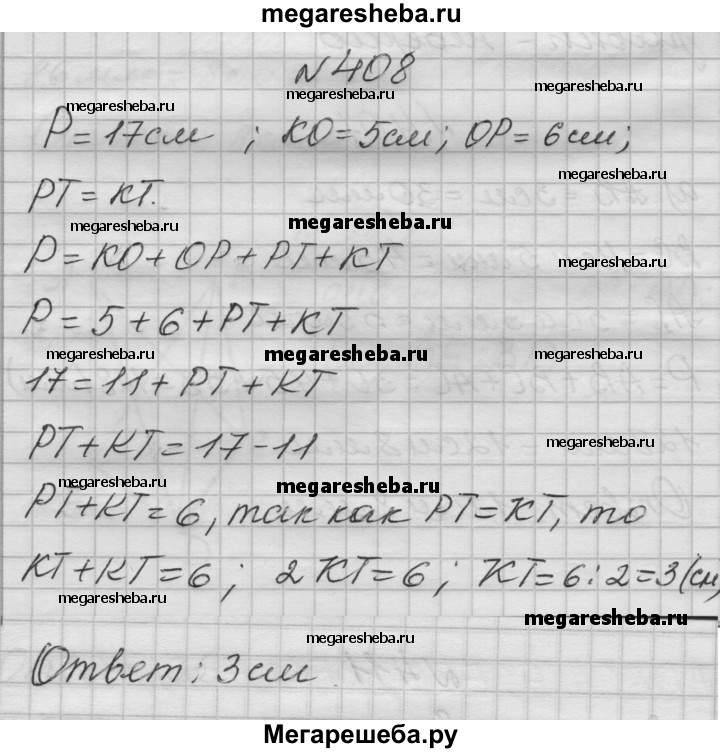 megaresheba.ru
N408
megaresheba.ru megaresheba.ru megaresheba.ru
P=17см ; KO=5см; OP=6см;
megaresheba.ru
PT=KT.
megaresheba.ru megaresheba.ru
P=KO+OP+PT+KT
megaresheba.ru
P=5+6+PT+KT
megaresheba.ru megaresheba.ru megaresheba.ru
17=11+PT+KT
PT+KT=17-11
megaresheba.ru
megaresheba.ru megaresheba.ru
PT+KT=6, так как PT=KT, то
KT+KT=6; 2KT=6; KT=6:2=3(см)
megaresheba.ru
megaresheba.ru
megaresheba.ru
Ответ: 3см
megaresheba.ru megaresheba.ru
Мегарешеба.ру